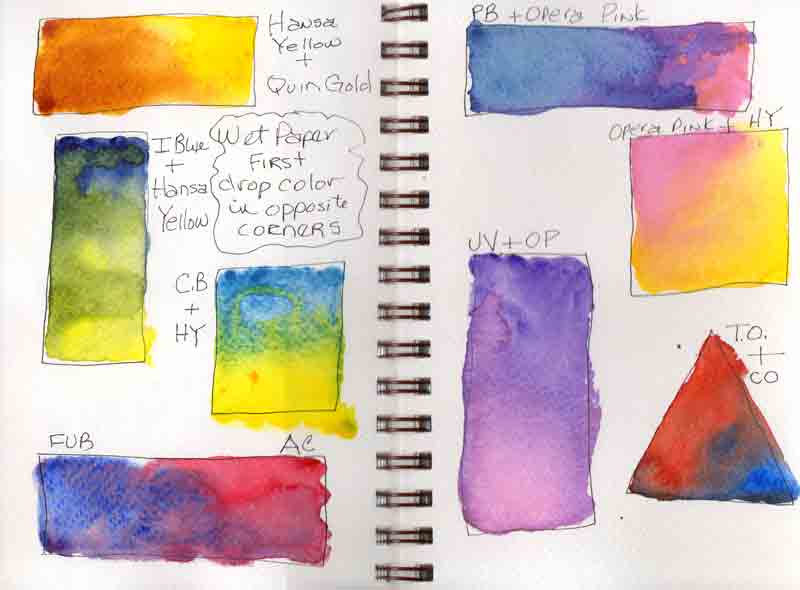 Hansa
Yellow
+
Quin Gold
I Blue
+
Hansa
Yellow
Wet Paper
First
drop color
in opposite
CORNERS
C.B
+
HY
FUB
AC
PB + Opera Pink
Opera Pink + HY
UV + OP
T.O.
+
CO